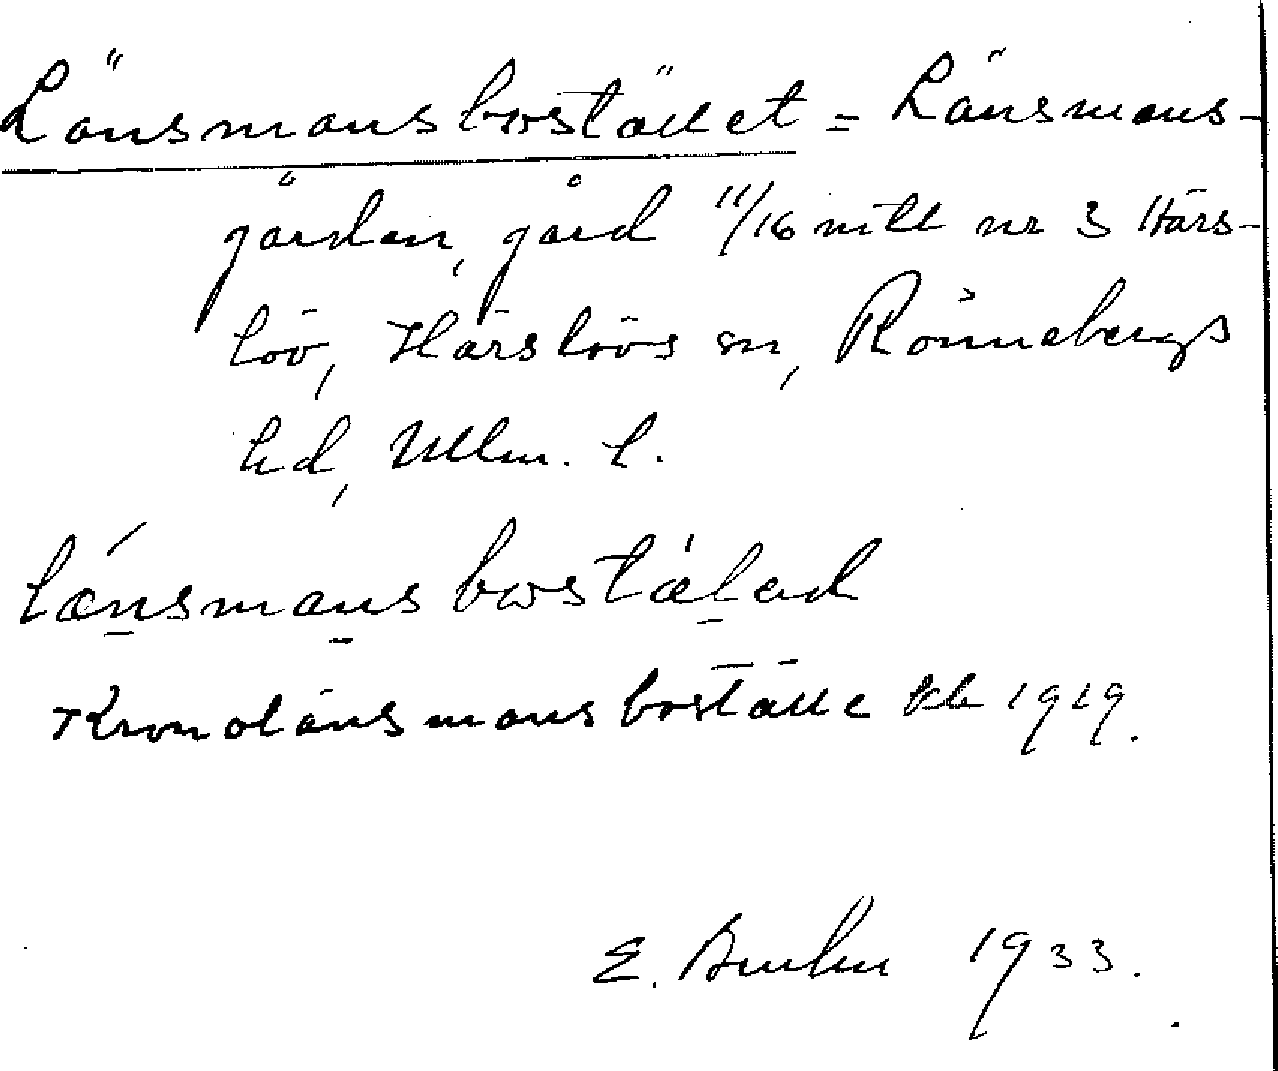 Länsmansbostället = Länsmans-
gården, gård 11/16 mtl nr 3 Härs-
löv, Härslövs sn, Rönnebergs
hd, Mlm. l.
lǽnsmansbostæ̀led
Kronolänsmansboställe Kb 1919.
E. 1933.